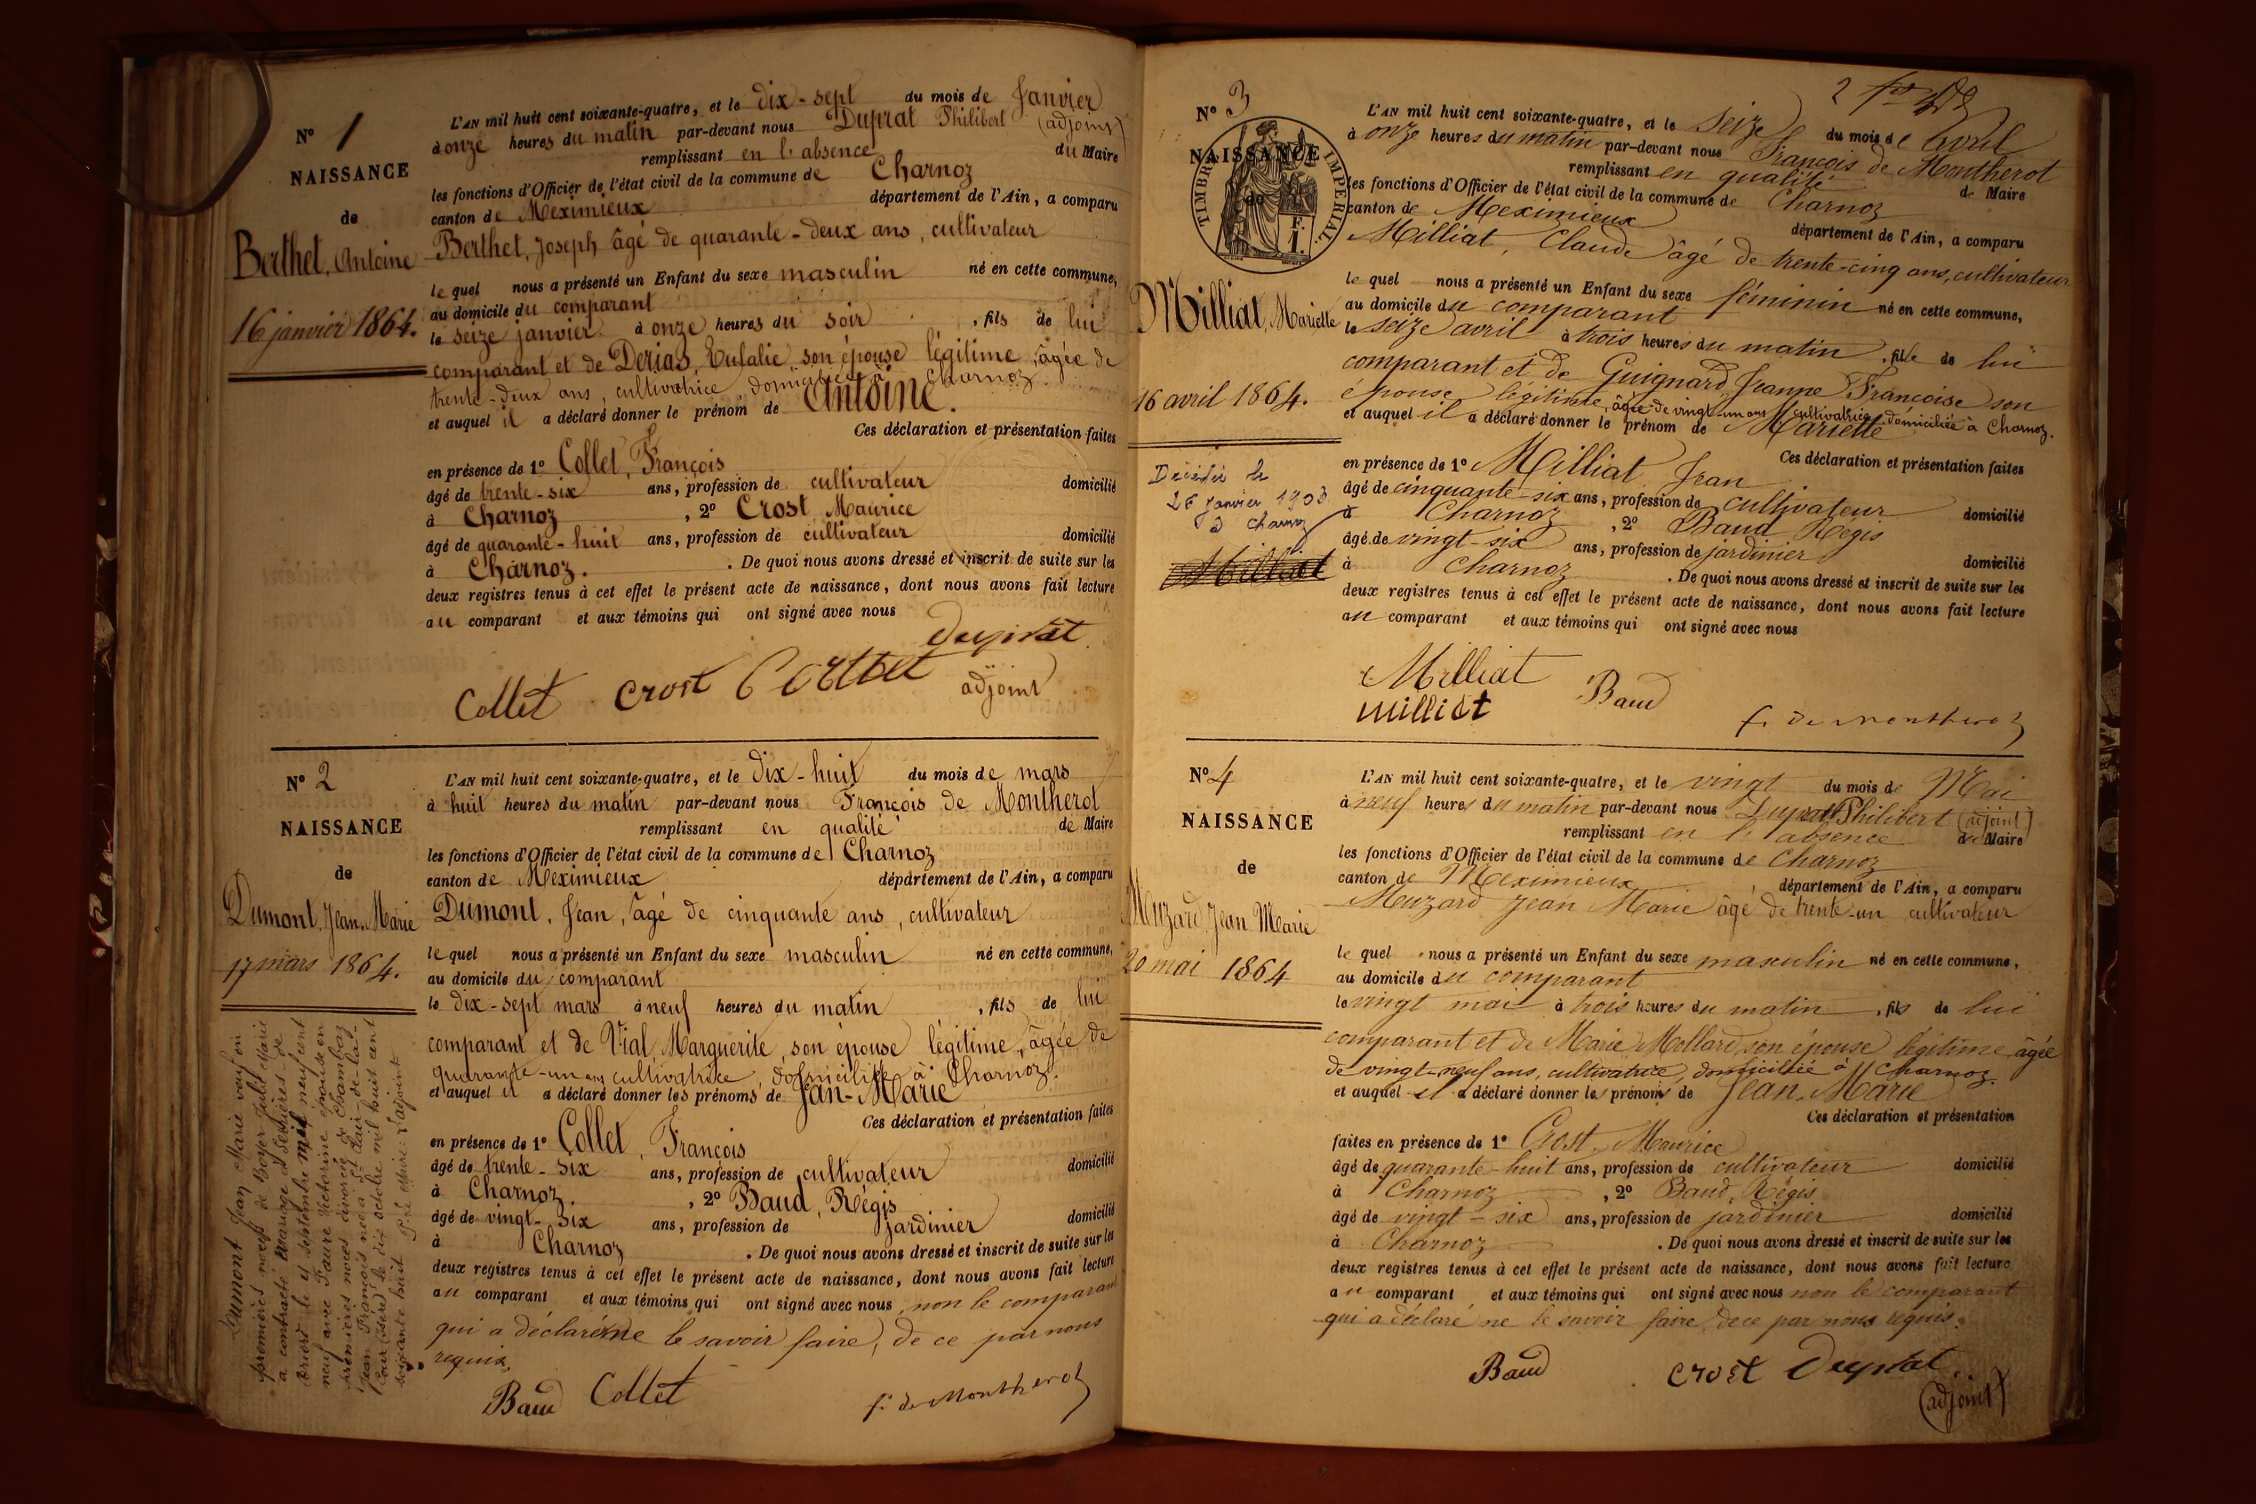 N° 1
NAISSANCE
de
Berthet, Antoine
16 janvier 1864.
L'AN mil huit cent soixante-quatre, et le dix-sept du mois de Janvier
à onze heures du matin par-devant nous Duprat Philibert (adjoint)
remplissant en l'absence du Maire
les fonctions d'Officier de l'état civil de la commune de Charnoz
canton de Meximieux département de l'Ain, a comparu
Berthet, Joseph âgé de quarante-deux ans, cultivateur
le quel nous a présenté un Enfant du sexe masculin né en cette commune,
au domicile du comparant
le seize janvier à onze heures du soir, fils de lui
comparant et de Derias, Eulalie, son épouse légitime, âgée de
trente-deux ans, cultivatrice domiciliée à Charnoz.
et auquel il a déclaré donner le prénom de Antoine.
Ces déclaration et présentation faites
en présence de 1° Collet, François
âgé de trente-six ans, profession de cultivateur domicilié
à Charnoz, 2° Crost Maurice
âgé de quarante-huit ans, profession de cultivateur domicilié
à Charnoz. De quoi nous avons dressé et inscrit de suite sur les
deux registres tenus à cet effet le présent acte de naissance, dont nous avons fait lecture
au comparant et aux témoins qui ont signé avec nous
Duprat
Collet Crost Berthet adjoint
N° 2
NAISSANCE
de
Dumont, Jean-Marie
17 mars 1864.
Dumont Jean Marie veuf en
premières noces de Boyer Julie Marie
a contracté mariage à Serrières-de-
Briord le 4 septembre mil neuf cent
neuf avec Faure Victorine épouse en
premières noces divorcée de Chambaz
Jean François née à St Clair-de-la-
Tour (Isère) le dix octobre mil huit cent
soixante huit. P. le Maire: L'adjoint
L'AN mil huit cent soixante-quatre, et le dix-huit du mois de mars
à huit heures du matin par-devant nous François de Montherot
remplissant en qualité de Maire
les fonctions d'Officier de l'état civil de la commune de Charnoz
canton de Meximieux département de l'Ain, a comparu
Dumont, Jean, âgé de cinquante ans, cultivateur
le quel nous a présenté un Enfant du sexe masculin né en cette commune,
au domicile du comparant
le dix-sept mars à neuf heures du matin, fils de lui
comparant et de Vial, Marguerite, son épouse légitime, âgée de
quarante-un ans cultivatrice, domiciliée à Charnoz.
et auquel il a déclaré donner les prénoms de Jean-Marie
Ces déclaration et présentation faites
en présence de 1° Collet, François
âgé de trente-six ans, profession de cultivateur domicilié
à Charnoz. , 2° Baud, Régis
âgé de vingt-six ans, profession de jardinier domicilié
à Charnoz. De quoi nous avons dressé et inscrit de suite sur les
deux registres tenus à cet effet le présent acte de naissance, dont nous avons fait lecture
au comparant et aux témoins qui ont signé avec nous, non le comparant
qui a déclaré ne le savoir faire, de ce par nous
requis.
Baud Collet f. de Montherot
N° 3
NAISSANCE
de
TIMBRE IMPERIAL
Milliat, Mariette
16 avril 1864.
Décédée le
26 Janvier 1903
à Charnoz
Milliat
L'AN mil huit cent soixante-quatre, et le seize du mois de Avril
à onze heures du matin par-devant nous François de Montherot
remplissant en qualité de Maire
les fonctions d'Officier de l'état civil de la commune de Charnoz
canton de Meximieux département de l'Ain, a comparu
Milliat, Claude âgé de trente-cinq ans, cultivateur
le quel nous a présenté un Enfant du sexe féminin né en cette commune,
au domicile du comparant
le seize avril à trois heures du matin, fille de lui
comparant et de Guignard Jeanne Françoise son
épouse légitime, âgée de vingt-un ans cultivatrice domiciliée à Charnoz.
et auquel il a déclaré donner le prénom de Mariette
Ces déclaration et présentation faites
en présence de 1° Milliat Jean
âgé de cinquante-six ans, profession de cultivateur domicilié
à Charnoz, 2° Baud Régis
âgé de vingt-six ans, profession de jardinier domicilié
à Charnoz. De quoi nous avons dressé et inscrit de suite sur les
deux registres tenus à cet effet le présent acte de naissance, dont nous avons fait lecture
au comparant et aux témoins qui ont signé avec nous
Milliat
Milliat Baud f. de Montherot
N° 4
NAISSANCE
de
Muzard Jean Marie
20 mai 1864
L'AN mil huit cent soixante-quatre, et le vingt du mois de Mai
à neuf heures du matin par-devant nous Duprat Philibert (adjoint)
remplissant en l'absence du Maire
les fonctions d'Officier de l'état civil de la commune de Charnoz
canton de Meximieux département de l'Ain, a comparu
Muzard Jean Marie âgé de trente-un cultivateur
le quel nous a présenté un Enfant du sexe masculin né en cette commune,
au domicile du comparant
le vingt mai à trois heures du matin, fils de lui
comparant et de Marie Mollard, son épouse légitime, âgée
de vingt-neuf ans, cultivatrice, domiciliée à Charnoz.
et auquel il a déclaré donner les prénoms de Jean Marie
Ces déclaration et présentation
faites en présence de 1° Crost Maurice
âgé de quarante-huit ans, profession de cultivateur domicilié
à Charnoz, 2° Baud, Régis
âgé de vingt-six ans, profession de jardinier domicilié
à Charnoz. De quoi nous avons dressé et inscrit de suite sur les
deux registres tenus à cet effet le présent acte de naissance, dont nous avons fait lecture
au comparant et aux témoins qui ont signé avec nous non le comparant
qui a déclaré ne le savoir faire, de ce par nous requis.
Baud Crost Duprat
(adjoint)